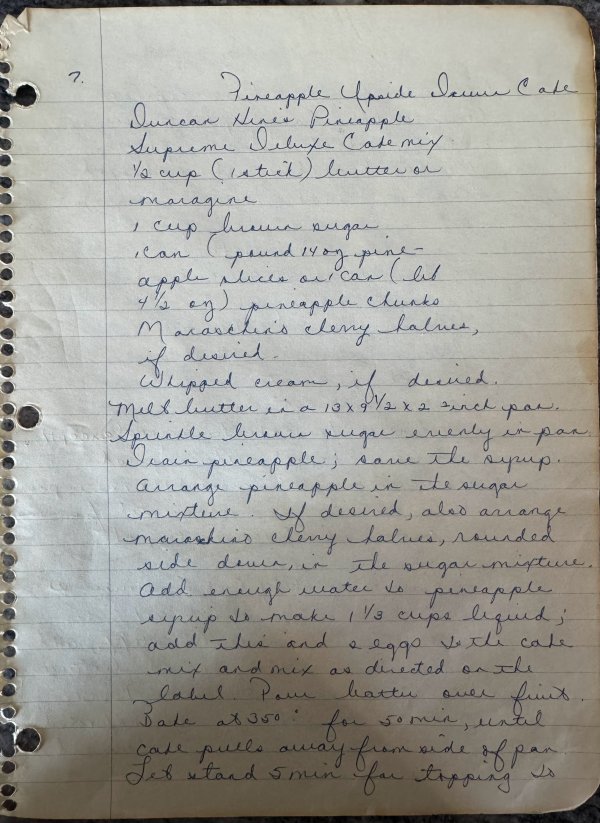 7.
Pineapple Upside Down Cake
Duncan Hines Pineapple
Supreme Deluxe Cake mix
1/2 cup (1 stick) butter or
maragine
1 cup brown sugar
1 can (pound 14 oz pine-
apple slices or 1 can (lb
4 1/2 oz) pineapple chunks
Maraschino cherry halves,
if desired.
Whipped cream, if desired.
Melt butter in a 13 x 9 1/2 x 2 inch pan.
Sprinkle brown sugar evenly in pan.
Drain pineapple; save the syrup.
Arrange pineapple in the sugar
mixture. If desired, also arrange
maraschino cherry halves, rounded
side down, in the sugar mixture.
Add enough water to pineapple
syrup to make 1 1/3 cups liquid;
add this and eggs to the cake
mix and mix as directed on the
label. Pour batter over fruit.
Bake at 350° for 50 min, until
cake pulls away from side of pan.
Let stand 5 min for topping to